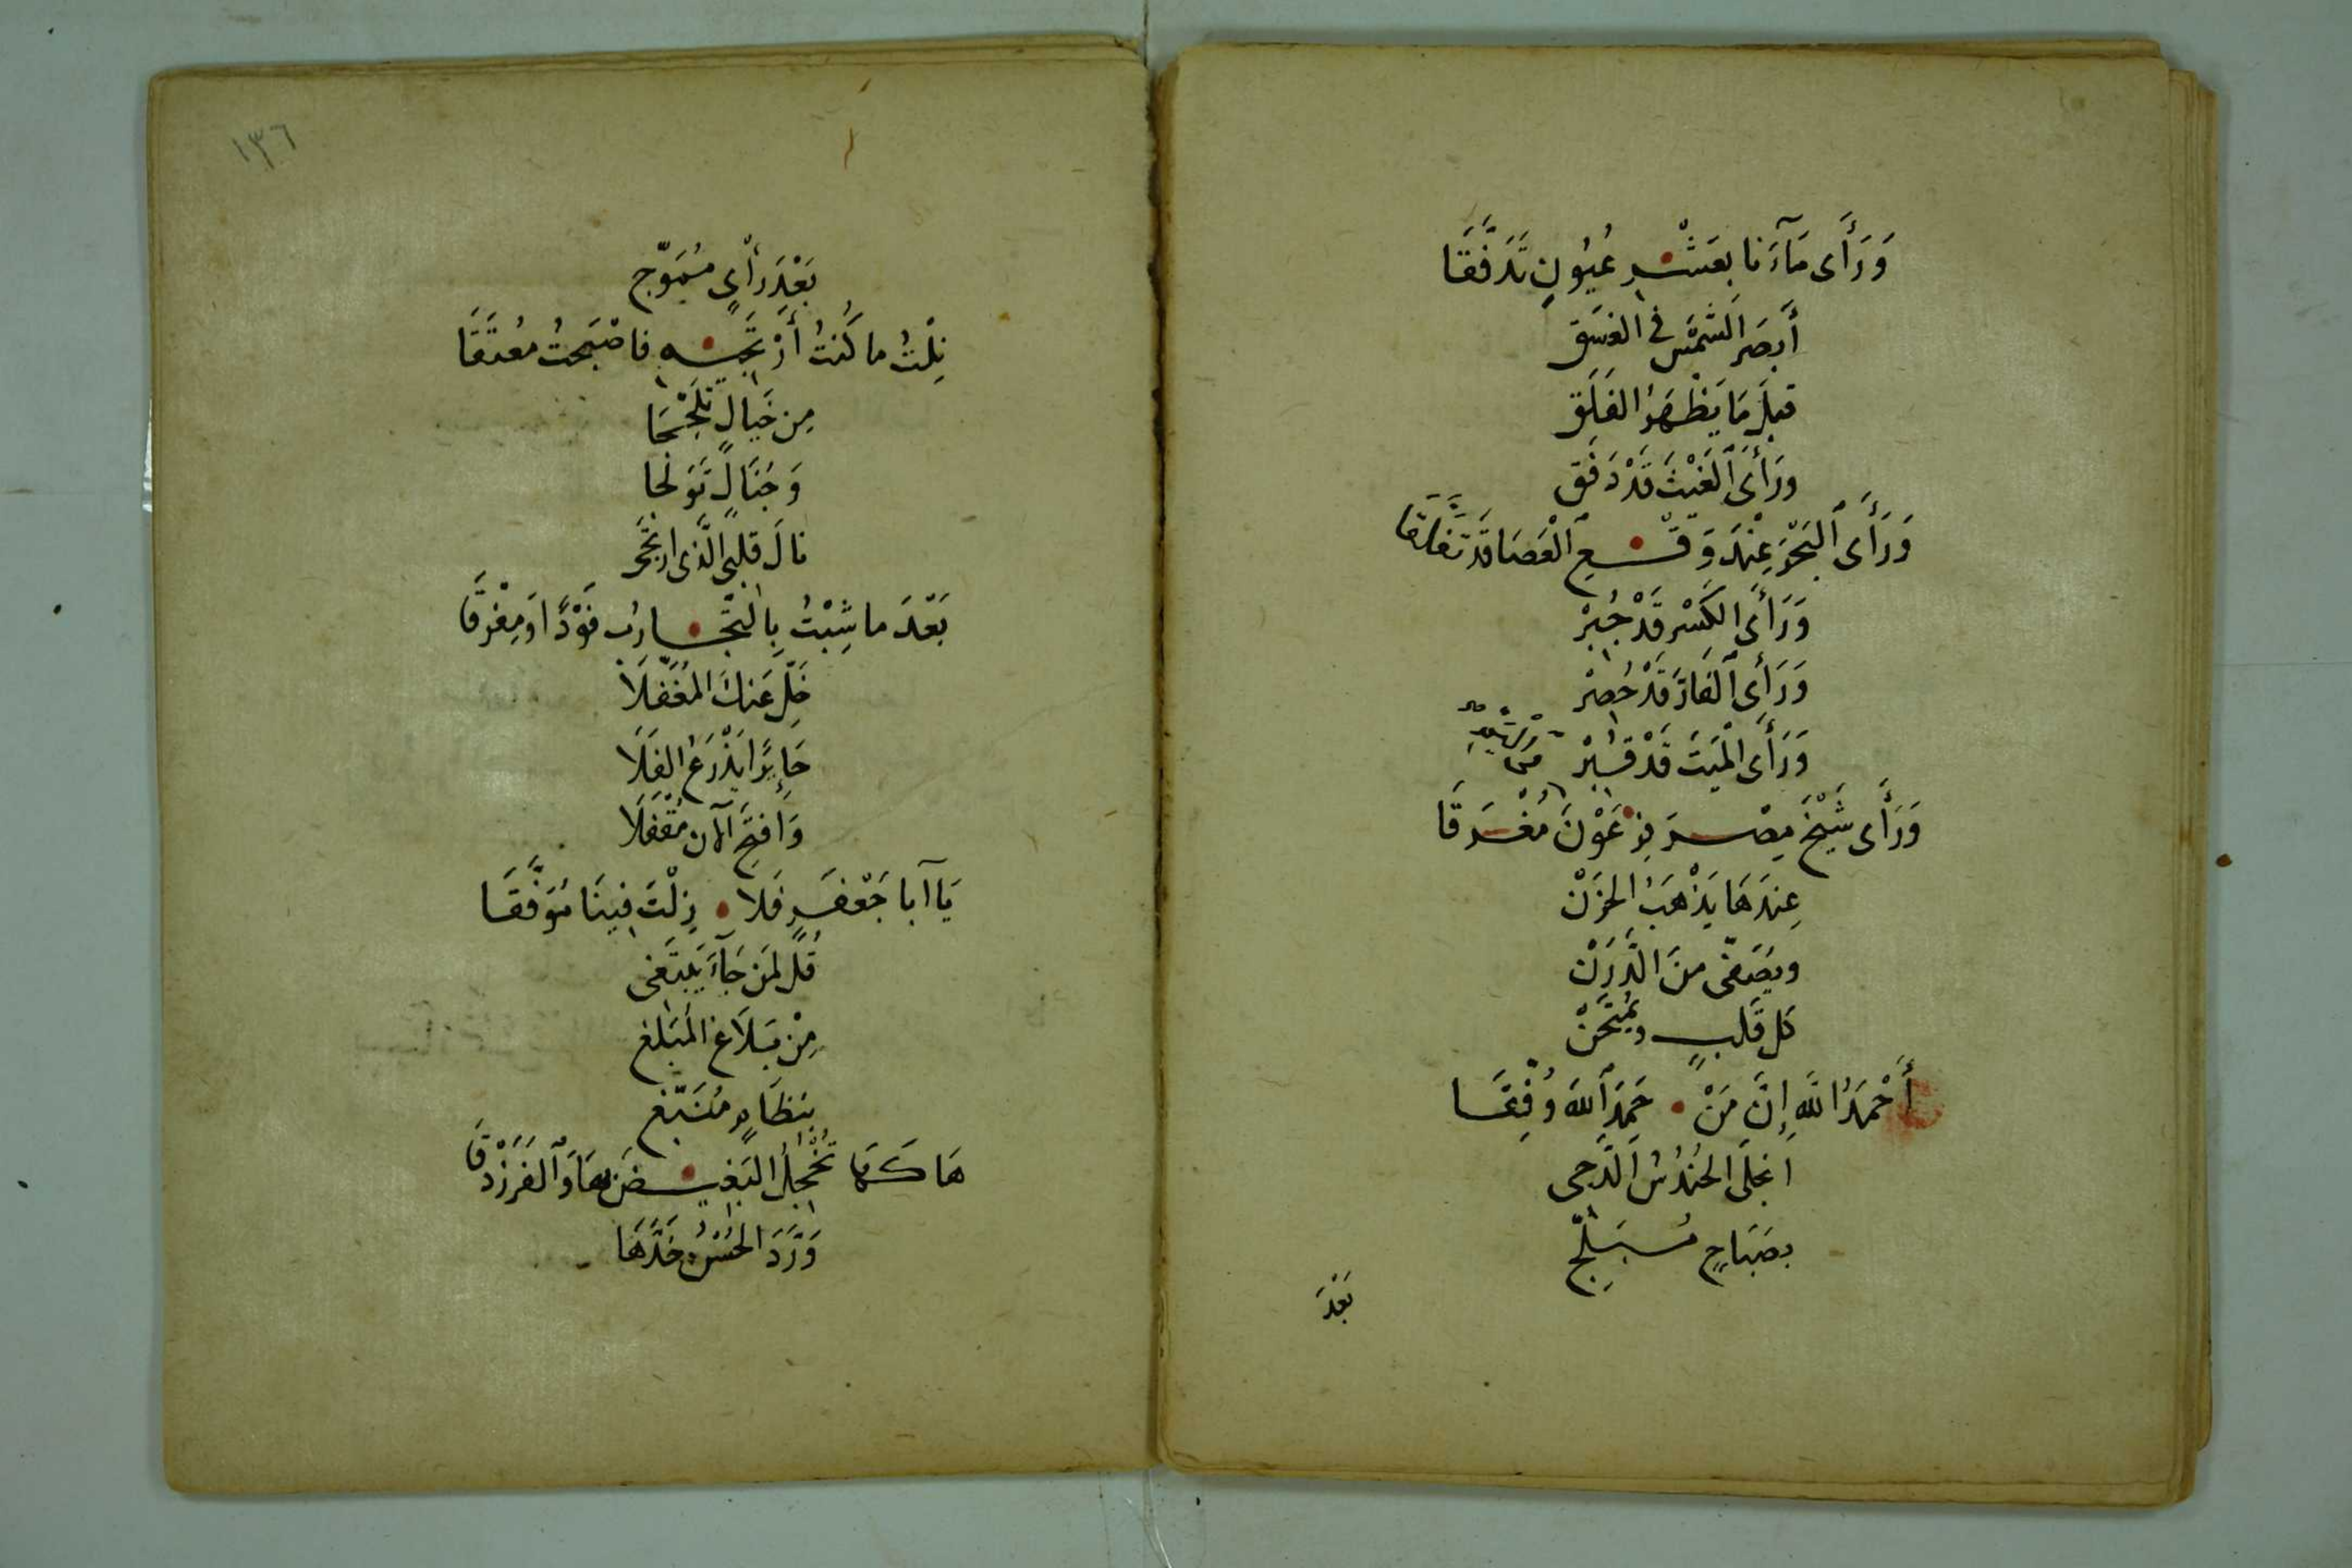 وَرَأَى مَآءَنا بعَشْرِ عُيُونٍ تَدَفَّقَا
أَبصَرَ الشَّمْسَ في الغسَقِ
قبلَ مَا يَظْهَرُ الفَلَق
ورَأَى ٱلغَيْثَ قَدْ دَفَق
وَرَأَى ٱلبَحْرَ عِنْدَ وَقْعِ ٱلْعَصَا قَد تَفَلَّقَا
وَرَأَى الكَسْرَ قَدْ جُبِرْ
وَرَأَى ٱلفَارَ قَدْ حُصِرْ
وَرَأَى الْمَيتَ قَدْ قُبِرْ
وَرَأَى شَيْخَ مِصْرَ فِرْعَوْنَ مُغْرَقَا
عِندَهَا يَذْهَبُ الحَزَنْ
ويُصَفّى منَ الدَّرَنْ
كل قَلبٍ ويُمْتَحَنْ
أَحْمَدُ اللهَ إِنَّ مَنْ حَمِدَ ٱللهَ وُفِّقَا
انجلَى الحُندُسُ الدَّجى
بصَبَاحٍ مُسَبلَجِ
بَعْدَ
١٣٦
بَعْدَ رَأْيٍ مُمَوّجِ
نِلْتُ ما كُنتُ أَرْتَجِيهِ فاصْبَحتُ مُعتَقَا
مِن خَيالٍ
وَجَنَالٍ
نالَ قلبي الَّذى ارتَجَى
بَعْدَ ما شِبْتُ بِالتَّجَارِبِ فَوْدًا اوَمِفْرَقَا
خَلِّ عَنكَ المُغَفَّلَا
حَائِرًا يَذْرَعُ الفَلَا
وَافتَحِ الآن مُقْفَلَا
يَا آبا جَعْفَرٍ فَلا زِلْتَ فِينَا مُوَفَّقَا
قُل لمَن جَآءَ يَبتَغى
مِنْ بَلَاغ المُبَلغ
بنظَامٍ
هَاكَهَا تُخْجِلُ البَغِيضَ بهَا وَٱلفَرَزْدَقَا
وَرَّدَ الحُسْنُ خَدَّهَا